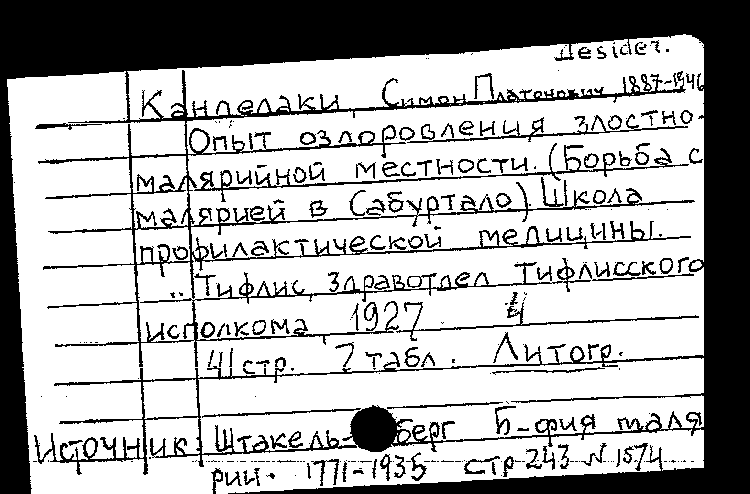 Desider.
Канделаки, Симон Платонович, 1887-1946
Опыт оздоровления злостно-
малярийной местности. (Борьба с
малярией в Сабуртало) Школа
профилактической медицины.
Тифлис, Здравотдел Тифлисского
исполкома, 1927 4
41 стр. 2 табл. Литогр.
Источник: Штакель-берг Б-фия маля
рии. 1771-1935 стр 243 N 1574